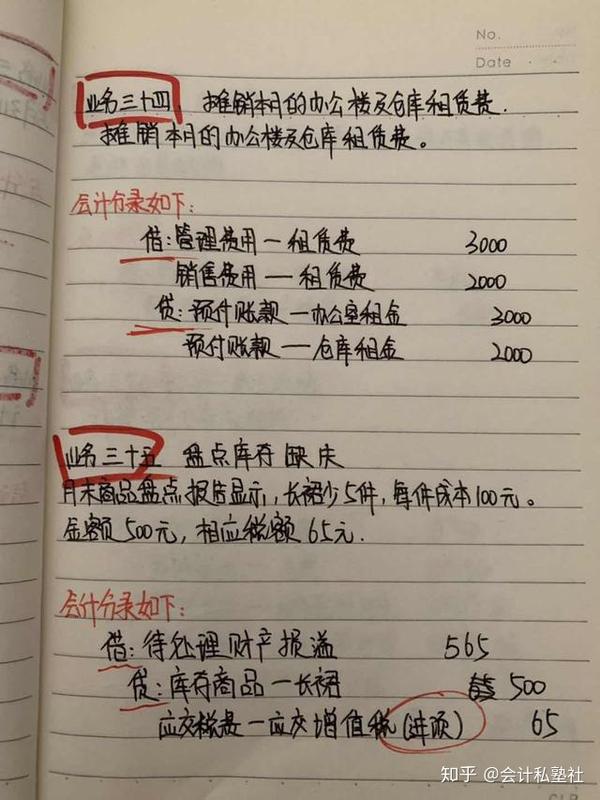 No.
Date
业务三十四，摊销本月的办公楼及仓库租赁费.
摊销本月的办公楼及仓库租赁费。
会计分录如下:
借:管理费用一租赁费 3000
销售费用一租赁费 2000
贷:预付账款一办公室租金 3000
预付账款一仓库租金 2000
业务三十五 盘点库存
月末商品盘点报告显示,长裙少5件,每件成本100元。
金额500元,相应税额65元.
会计分录如下:
借:待处理财产损溢 565
贷:库存商品一长裙 500
应交税费一应交增值税(进项) 65
知乎 @会计私塾社